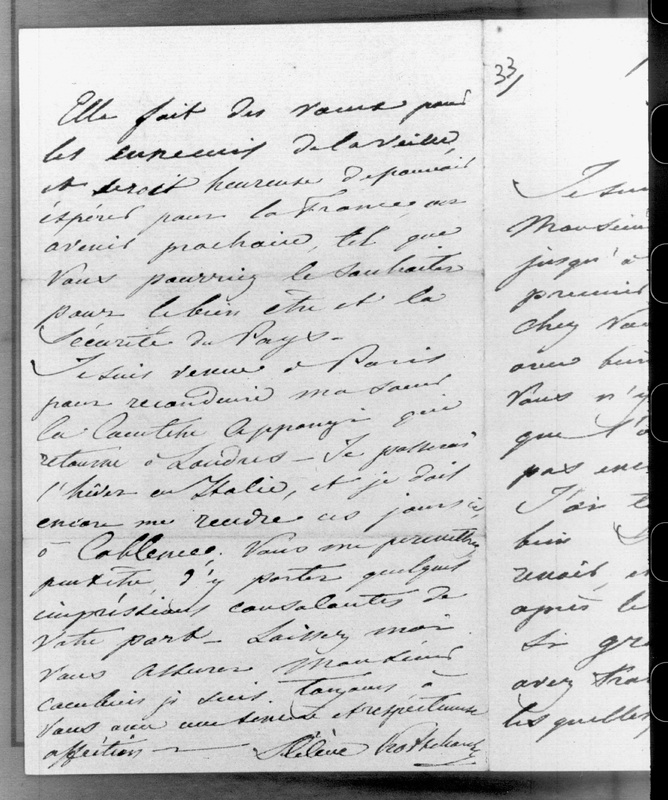 Elle fait des vœux pour
les ennemis de la veille,
et seroit heureuse de pouvoir
éspérer pour la France, un
avenir prochain, tel que
Vous pourriez le souhaiter
pour le bien être et la
Sécurité du Pays -
Je suis venue à Paris
pour reconduire ma sœur
la Comtesse Apponyi qui
retourne à Londres - Je passerai
l'hiver en Italie, et je dois
encore me rendre ces jours ci
à Coblence. Vous me permettrez
peutêtre, d'y porter quelques
impréssions consolantes de
Votre part - Laissez moi
Vous assurer Monsieur
combien je suis toujours à
Vous avec une sincère et respectueuse
affection - Hélène
33,
Je suis
Monsieur
jusqu'à
premier
chez Vou
avec bien
Vous n'y
que
pas enco
J'ai
bien
venoit, et
après le
si gra
avez
lesquelles